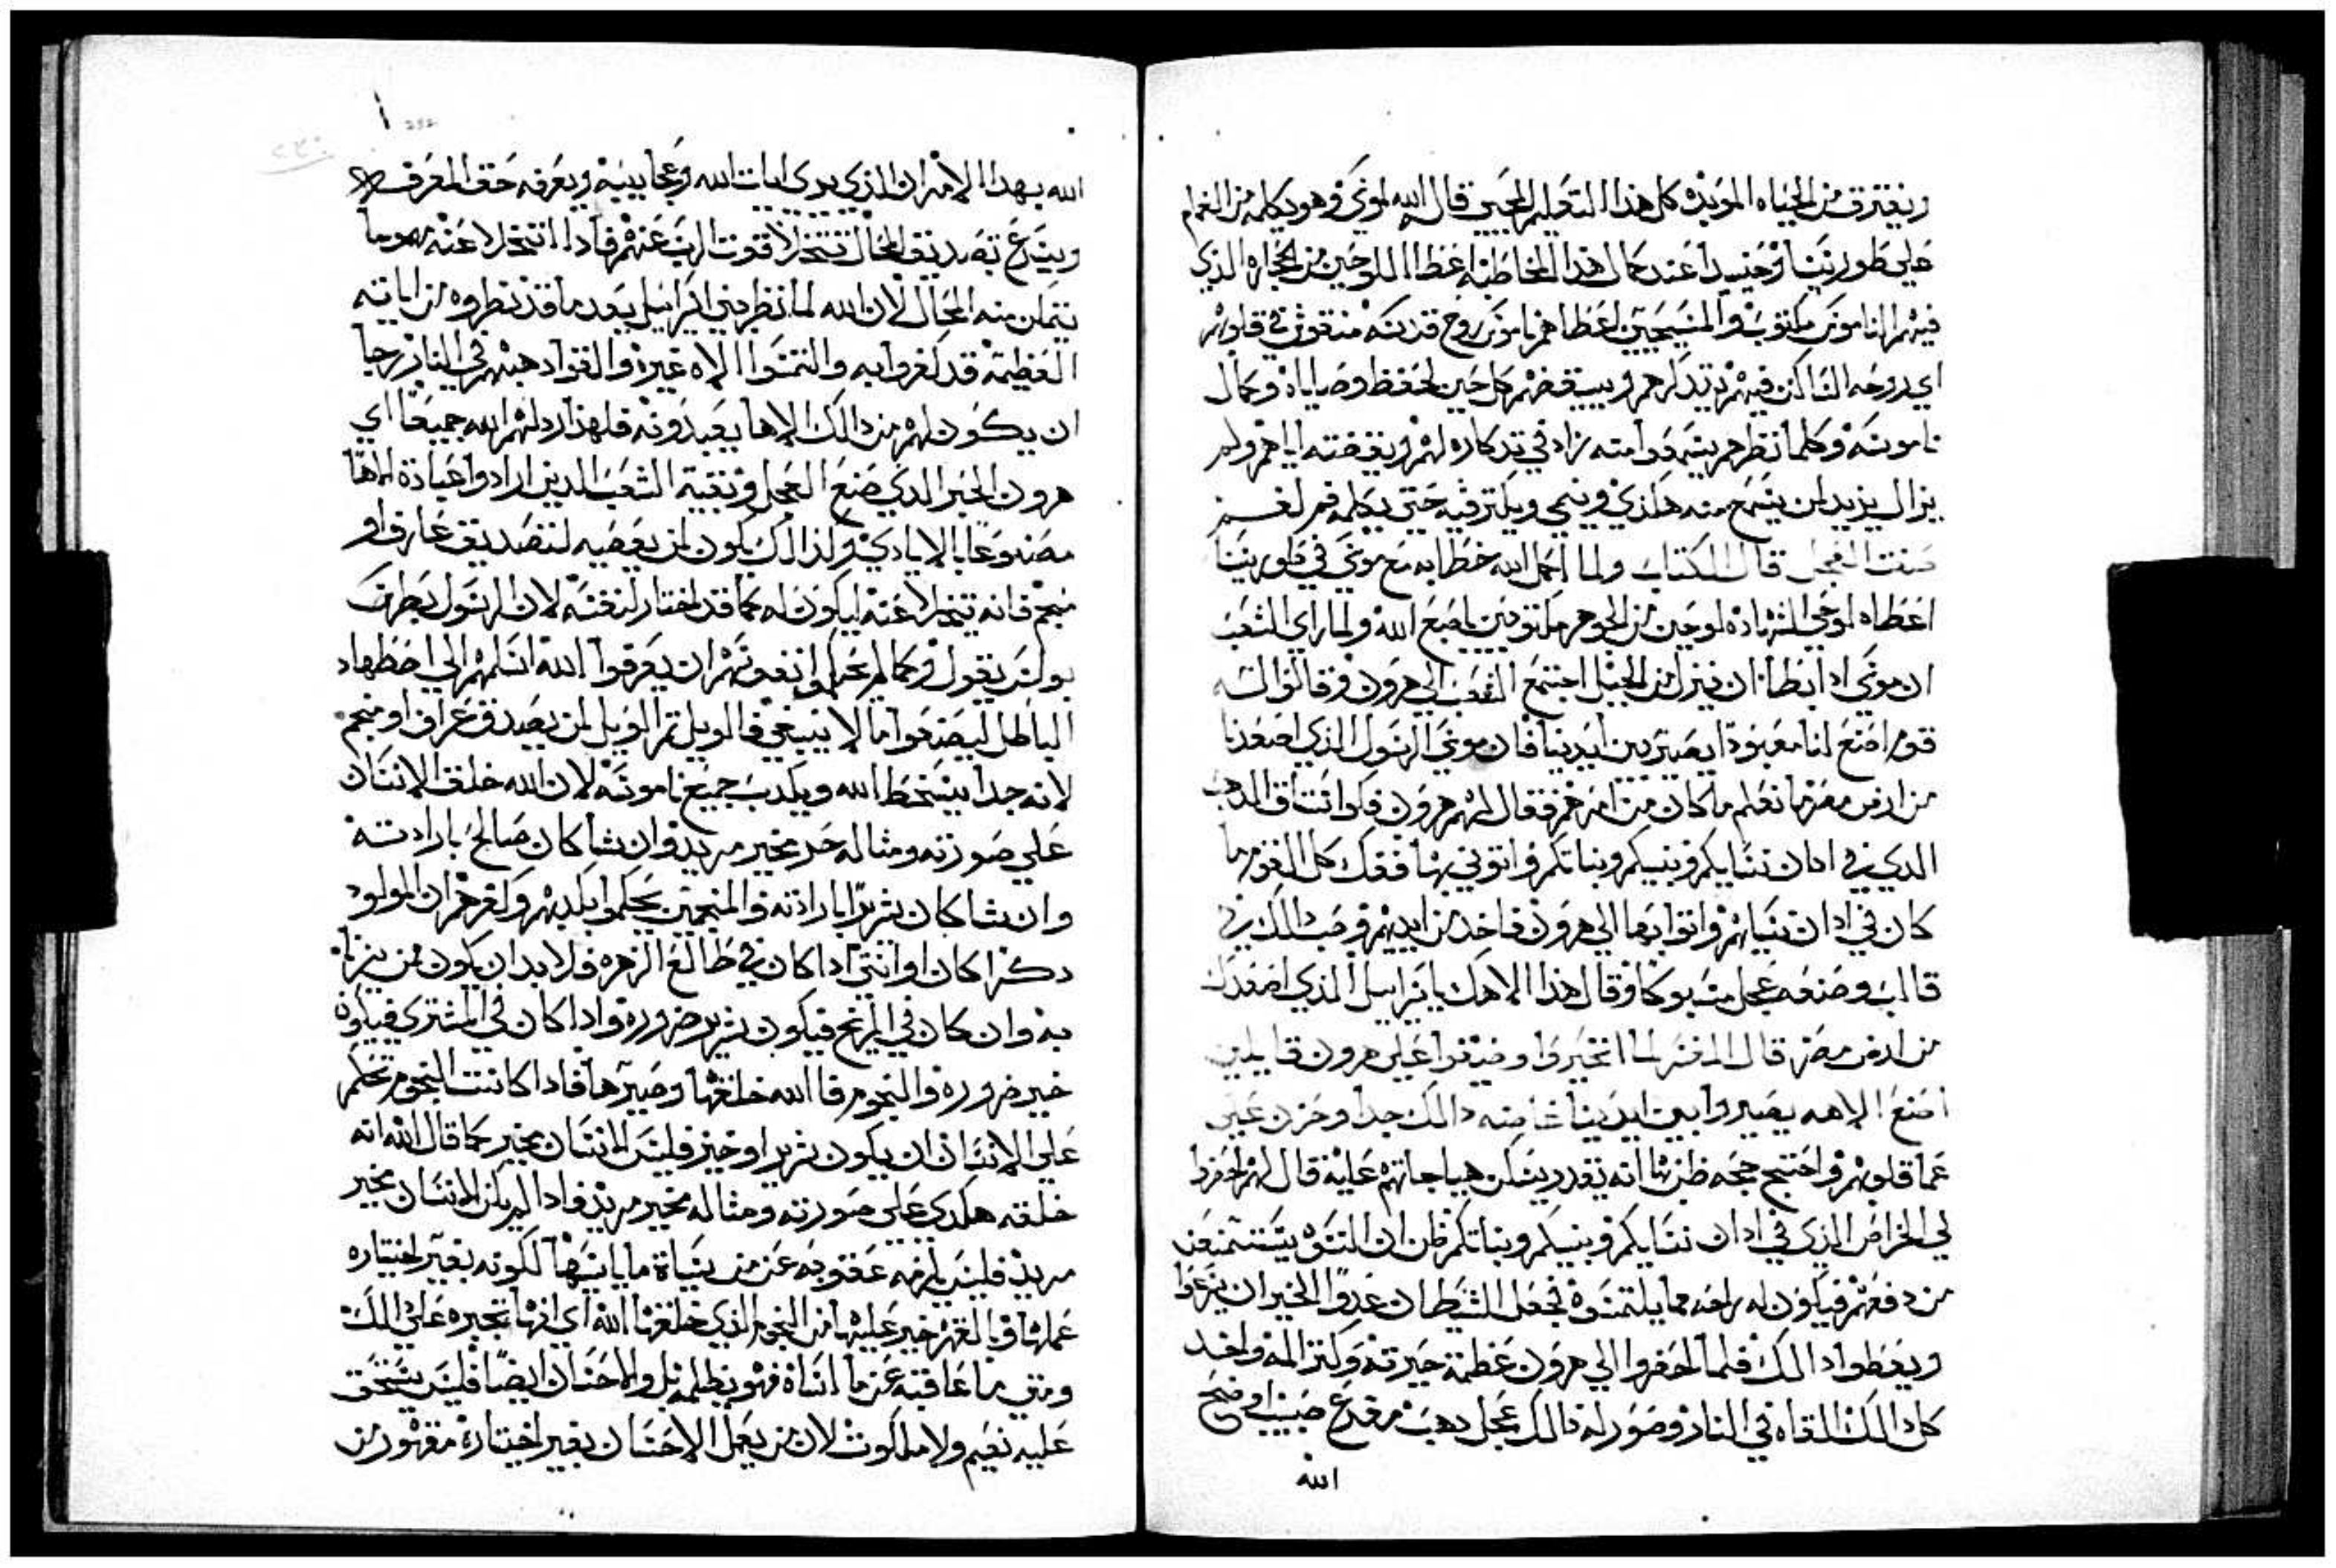 ويفترق من الحياه الموبده كل هذا التعليم العجيب قال الله لموسي وهو يكلمه من الغمام
علي طور سينا وحينيدا عند كمال هذا المخاطبه اعطا اللوحين من الحجاره الذي
فيهم الناموس مكتوب والمسيحيين اعطاهم ناموس روح قدسه منقوش في قلوبهم
اي روحه الساكن فيهم يتدكرهم ويستقضهم كل حين لحفظ وصاياه وكمال
ناموسه وكلما نظرهم يسمعوا منه زاد في تدكاره لهم ويقضته اياهم ولم
يزال يزيد لمن يسمع منه هكذي وينمي ويكتر فيه حتي يكلمه فم لفم
صفت العجل قال الكتاب ولما اكمل الله خطابه مع موسي في طور سينا
اعطاه لوحي الشهاده لوحين من الجوهر مكتوبين باصبع الله ولما راي الشعب
ان موسي ادا ابطا ان ينزل من الجبل اجتمع الشعب الي هرون وقالوا له
قوم اصنع لنا معبودا يصير بين ايدينا فان موسي الرسول الذي اصعدنا
من ارض مصر ما نعلم ما كان من امره فقال لهم هرون فكوا اشناف الدهب
الدي في ادان نسايكم وبنيكم وبناتكم واتوني بها ففك كل القوم ما
كان في ادان نسايهم واتوا بها الي هرون فاخد من ايديهم وصب دالك في
قالب وصنعه عجل مسبوكا وقال هذا الاهك يا سراييل الذي اصعدك
من ارض مصر قال المفسر لما اتحيروا وضيقوا علي هرون قايلين
اصنع الاهه يصيروا بين ايدينا غاضه دالك جدا وحزن علي
عما قلوبهم واحتج حجه ظن بها انه يقدر يسكن هياجانهم عليه قال لهم احضروا
لي الخراص الذي في ادان نسايكم وبنيكم وبناتكم فظن ان النسوه يستمنعن
من دفعهم فيكون له راحه مما يلتمسوه فجعل الشيطان عدو الخير ان ينزعوا
ويعطوا دالك فلما احضروا الي هرون عظمة حيرته وكتر المه واخد
كل دالك القاه في النار وصور له دالك عجل دهب مفدع
الله
الله بهدا الامر ان الذي يري ايات الله وعجايبيه ويعرفه حق المعرفه
ويسرع تصديق المحال تتخلا قوت الرب عنهم فادا اتخلا عنه
يتمكن منه المحال لان الله لما نظر بني اسراييل بعد ما قد نظروه من اياته
العظيمه قد كفروا به والتمسوا الاه غيره والقوا دهبهم في النار رجا
ان يكون لهم من دالك الاها يعبدونه فلهذا ردلهم الله جميعا اي
هرون الحبر الدي صنع العجل وبقية الشعب الدين ارادوا عبادة الاها
مصنوعا بالايادي ولذالك يكون لمن يعصيه لتصديق عارف او
منجم فانه يتخلا عنه ليكون له كما قد اختار لنفسه لان الرسول بطرك
بولس يقول وكما لم يحكموا نفوسهم ان يعرفوا الله اسلمهم الي اضطهاد
الباطل ليصنعوا ما لا ينبغي فالويل تم الويل لمن يصدق عراف او منجم
لانه جدا يسخط الله ويكدب جميع ناموسه لان الله خلق الانسان
علي صورته ومثاله حر مخير مريد وان شا كان صالح بارادته
وان شا كان شريرا بارادته والمنجمين يحكموا بكدبهم وكفرهم ان المولود
دكرا كان او انتي ادا كان في طالع الزهره فلا بد ان يكون من يزنا
به وان كان في المريخ فيكون شرير ضروره وادا كان في المشتري فيكون
خير ضروره والنجوم فالله خلقها وصيرها فادا كانت النجوم تحكم
علي الانسان ان يكون شريرا وخير فليس الانسان بخير كما قال الله انه
خلقه هكدي علي صورته ومثاله مخير مريد فادا لم يكن الانسان مخير
مريد فليس يلزمه عقوبه عن من يساة ما يانيها لكونه بغير اختياره
عملها وبالقهر خير عليها من النجم الذي خلقها الله اي انها تجبره علي دالك
ومتي ما عاقبه عن ما اساه فهو يظلمه بل والاحسان ايضا فليس يستحق
عليه نعيم ولا ملكوت لان من يعمل الاحسان بغير اختياره مقهور من